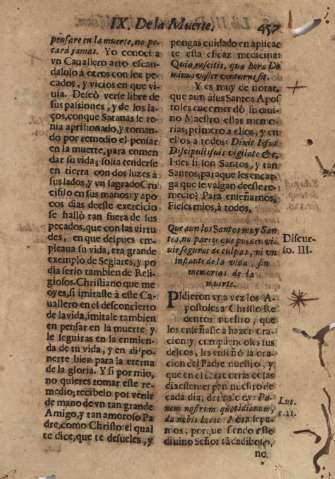 IX. De la Muerte, 457
pensare en la muerte, no pe-
cará jamas. Yo conocí a
vn Cauallero asto escan-
daloso à otros con los pe-
cados, y vicios en que vi-
uia. Deseó verse libre de
sus passiones, y de los la-
ços, con que Satanàs le te-
nia aprisionado, y toman-
do por remedio el pensar
en la muerte, para enmen-
dar su vida, solia tenderse
en tierra con dos luzes à
sus lados, y vn sagrado Cru-
cifixo en sus manos, y à po-
cos dias deste exercicio
se hallò tan fuera de sus
pecados, que con las virtu-
des, en que despues em-
pleaua su vida, era grande
exemplo de Seglares, y po-
dia serlo tambien de Reli-
giosos. Christiano que me
oyes, si imitaste à este Ca-
uallero en el desconcierto
de la vida, imitale tambien
en pensar en la muerte, y
le seguiràs en la enmien-
da de tu vida, y en dispo-
nerte bien para la eterna
de la gloria. Y si por mio,
no quieres tomar este re-
medio, recibelo por venir
de mano de vn tan grande
Amigo, y tan amoroso Pa-
dre, como Christo: el qual
te dice, que te desueles, y
pongas cuidado en aplicar-
te esta eficaz medicina:
Quia nescitis, qua hora Do-
minus vester venturus sit.
Y es muy de notar,
que aun à sus Santos Apos-
toles encomendò su diui-
no Maestro estas memo-
rias, primero à ellos, y en
ellos à todos: Dixit Iesus
Discipulis suis: vigilate &c.
Santos, y tan
Santos, para que les encar-
ga que se valgan deste re-
medio? Para enseñarnos,
Fieles mios, à todos,
Que aun los Santos muy San-
tos, no por que pueden vi-
uir seguros de culpas, ni vn
instante de la vida, sin
memorias de la
muerte.
Discur-
so. III.
Pidieron vna vez los A-
postoles à Christo Re-
dentor nuestro, que
les enseñase à hazer ora-
cion; y cumpliendo sus
deseos, les enseñò la ora-
cion del Padre nuestro, y
que en ella
dia el pan nuestro de
cada dia, Pa-
nem nostrum quotidianum,
da nobis
mos, porque siendo este
diuino Señor
Luc.
c. 11.
no,